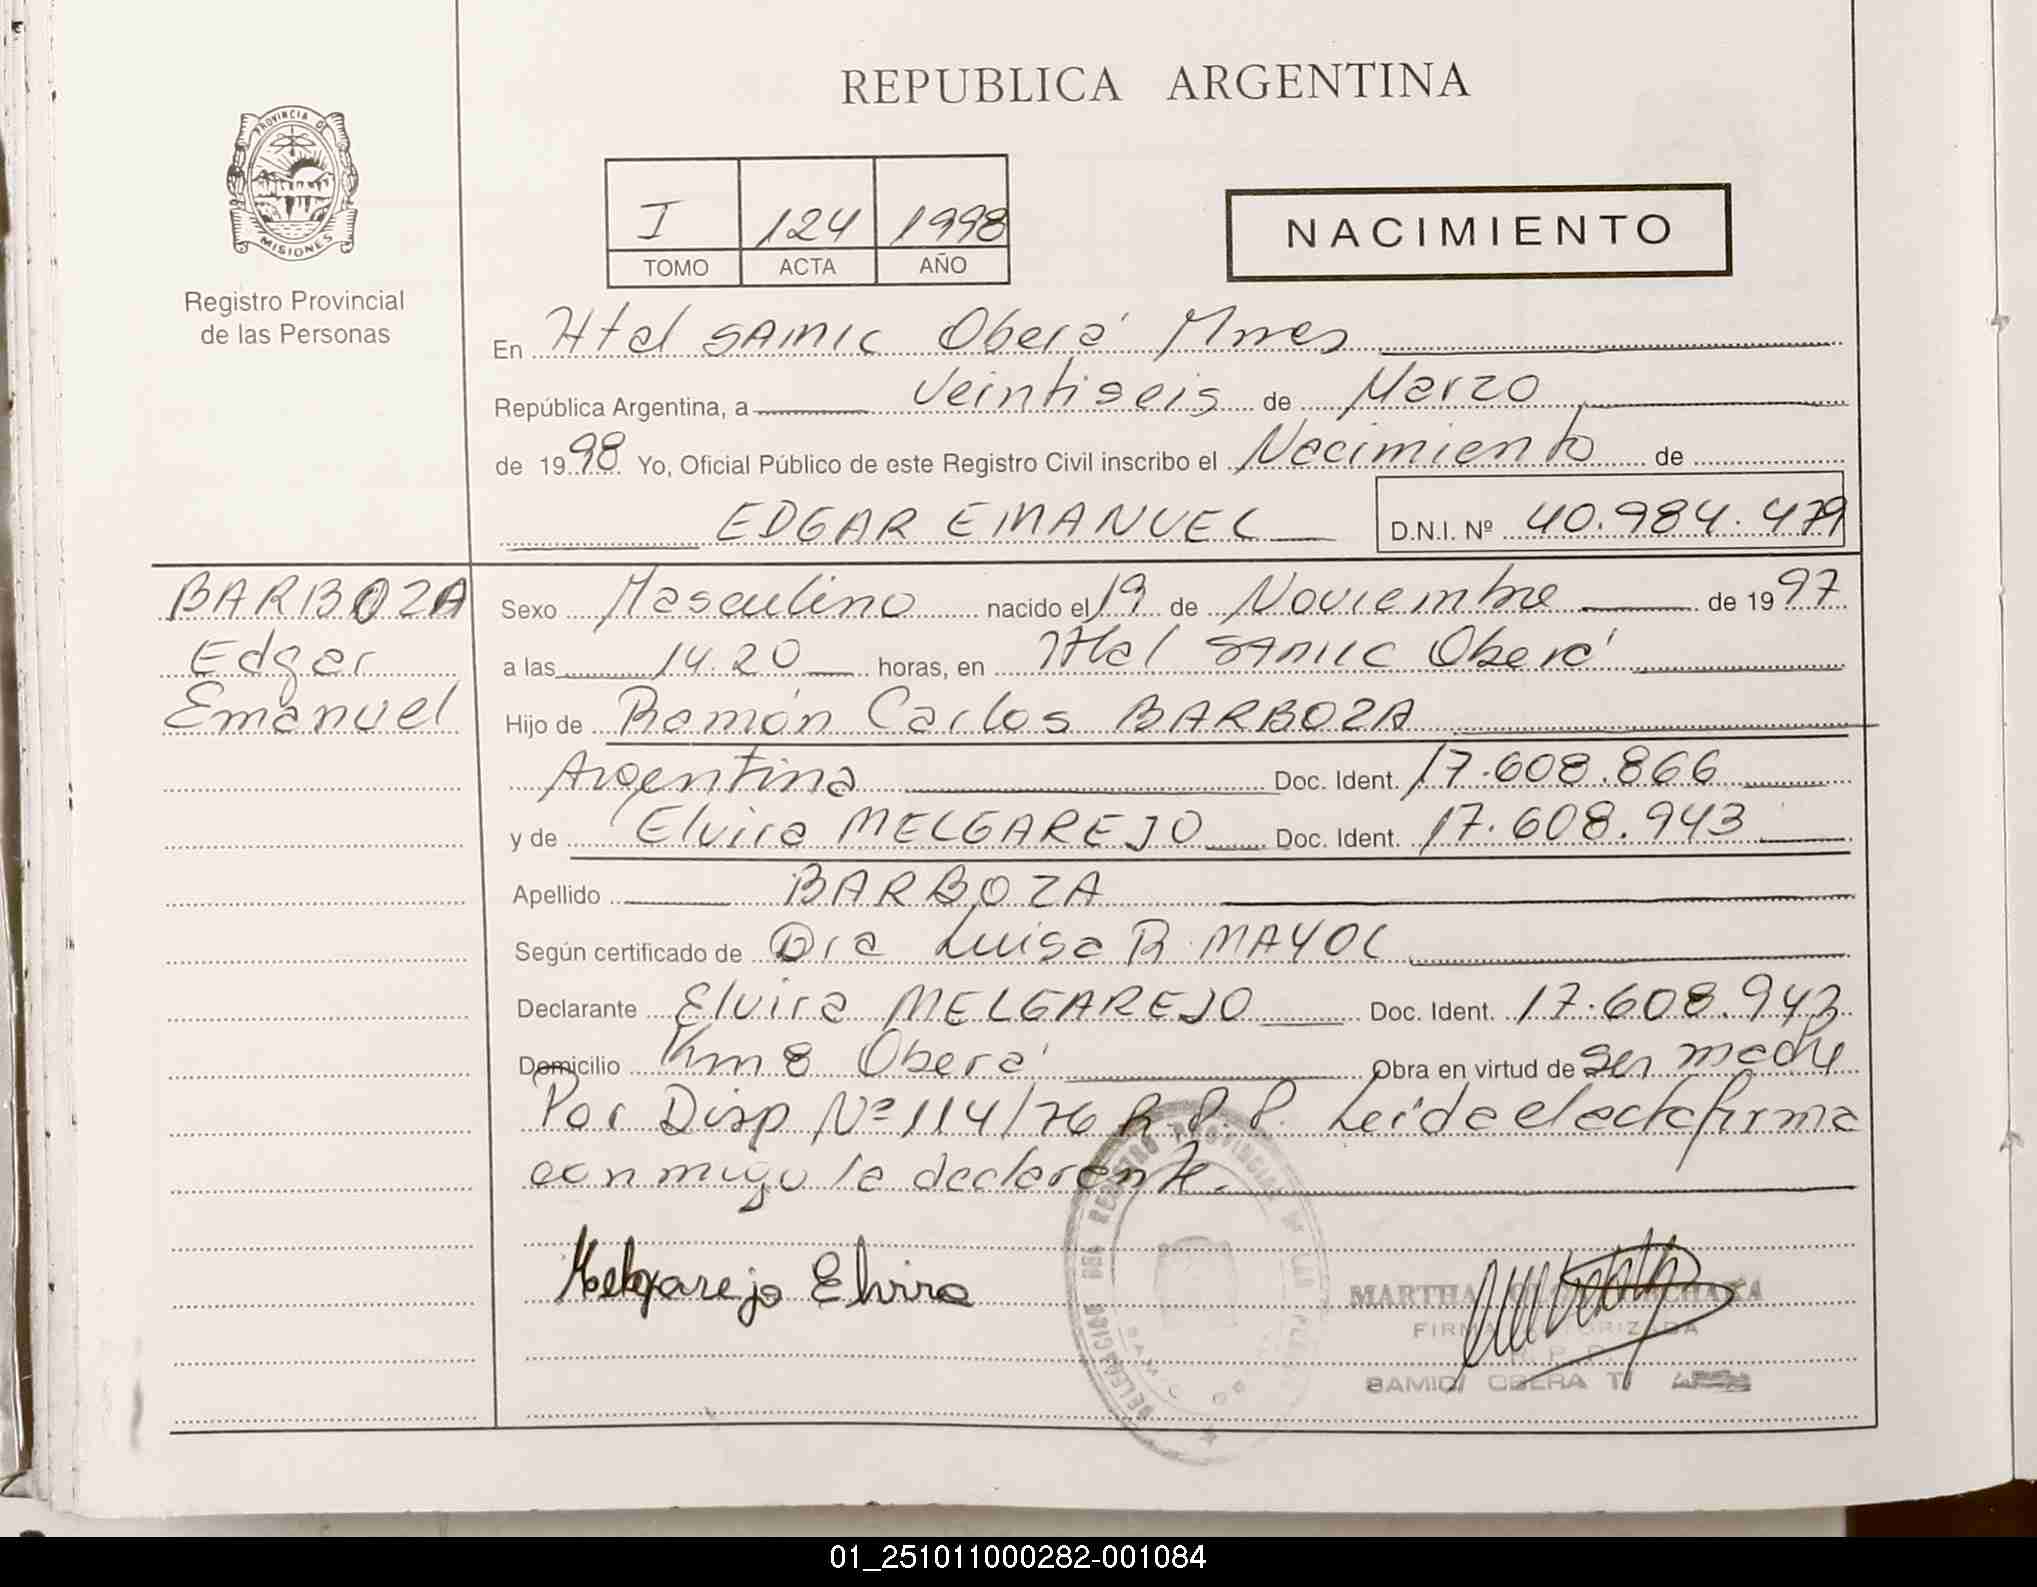 REPUBLICA ARGENTINA
PROVINCIA DE
MISIONES
Registro Provincial
de las Personas
I 124 1998
TOMO ACTA AÑO
NACIMIENTO
En Htal SAMIC Oberá Mnes
República Argentina, a Veintiseis de Marzo
de 1998 Yo, Oficial Público de este Registro Civil inscribo el Nacimiento de
EDGAR EMANUEL D.N.I. Nº 40.984.479
BARBOZA
Edgar
Emanuel
Sexo Masculino nacido el 19 de Noviembre de 1997
a las 14.20 horas, en Htal SAMIC Oberá
Hijo de Ramón Carlos BARBOZA
Argentina Doc. Ident. 17.608.866
y de Elvira MELGAREJO Doc. Ident. 17.608.943
Apellido BARBOZA
Según certificado de Dra Luisa R. MAYOL
Declarante Elvira MELGAREJO Doc. Ident. 17.608.943
Domicilio Km 8 Oberá Obra en virtud de ser madre
Por Disp Nº 114/76 R.P.P. Leida el acta firma
conmigo la declarante.
Melgarejo Elvira
DELEGACION DEL REGISTRO PROVINCIAL DE LAS
MARTHA
FIRMA AUTORIZADA
R. P. P.
SAMIC OBERA
01_251011000282-001084